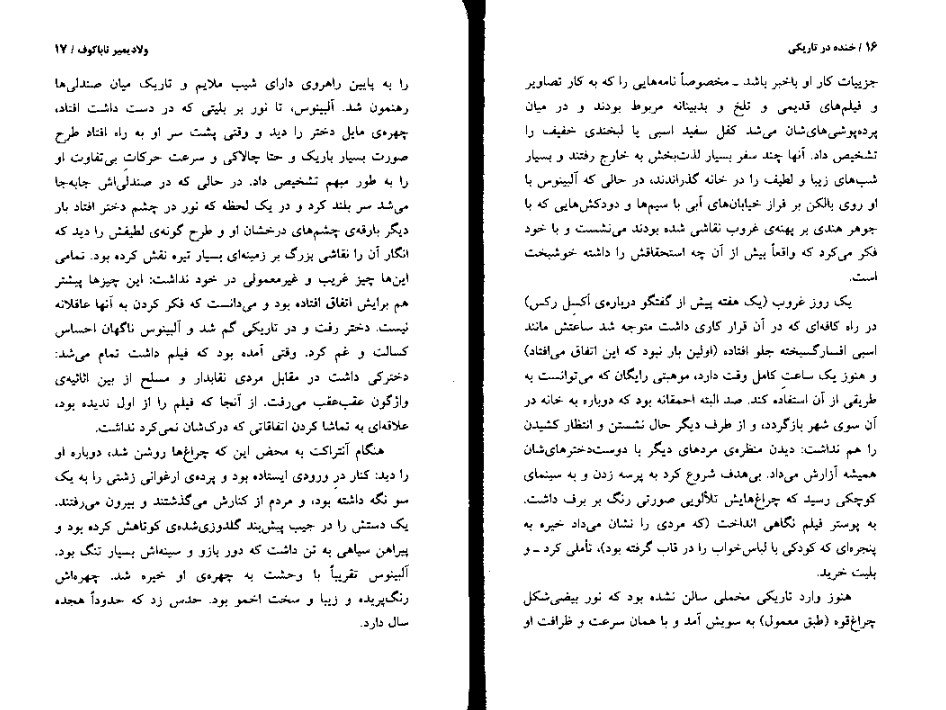 ۱۶ / خنده در تاریکی
جزییات کار او باخبر باشد ـ مخصوصاً نامه‌هایی را که به کار تصاویر
و فیلم‌های قدیمی و تلخ و بدبینانه مربوط بودند و در میان
پرده‌پوشی‌های‌شان می‌شد کفل سفید اسبی یا لبخندی خفیف را
تشخیص داد. آنها چند سفر بسیار لذت‌بخش به خارج رفتند و بسیار
شب‌های زیبا و لطیف را در خانه گذراندند، در حالی که آلبینوس با
او روی بالکن بر فراز خیابان‌های آبی با سیم‌ها و دودکش‌هایی که با
جوهر هندی بر پهنه‌ی غروب نقاشی شده بودند می‌نشست و با خود
فکر می‌کرد که واقعاً بیش از آن چه استحقاقش را داشته خوشبخت
است.
یک روز غروب (یک هفته پیش از گفتگو درباره‌ی اَکسِل رِکس)
در راه کافه‌ای که در آن قرار کاری داشت متوجه شد ساعتش مانند
اسبی افسارگسیخته جلو افتاده (اولین بار نبود که این اتفاق می‌افتاد)
و هنوز یک ساعتِ کامل وقت دارد، موهبتی رایگان که می‌توانست به
طریقی از آن استفاده کند. صد البته احمقانه بود که دوباره به خانه در
آن سوی شهر بازگردد، و از طرف دیگر حال نشستن و انتظار کشیدن
را هم نداشت: دیدن منظره‌ی مردهای دیگر با دوست‌دخترهای‌شان
همیشه آزارش می‌داد. بی‌هدف شروع کرد به پرسه زدن و به سینمای
کوچکی رسید که چراغ‌هایش تلألویی صورتی رنگ بر برف داشت.
به پوستر فیلم نگاهی انداخت (که مردی را نشان می‌داد خیره به
پنجره‌ای که کودکی با لباس‌خواب را در قاب گرفته بود)، تأملی کرد ـ و
بلیت خرید.
هنوز وارد تاریکی مخملی سالن نشده بود که نور بیضی‌شکل
چراغ‌قوه (طبق معمول) به سویش آمد و با همان سرعت و ظرافت او
ولادیمیر ناباکوف / ۱۷
را به پایین راهروی دارای شیب ملایم و تاریک میان صندلی‌ها
رهنمون شد. آلبینوس، تا نور بر بلیتی که در دست داشت افتاد،
چهره‌ی مایل دختر را دید و وقتی پشت سر او به راه افتاد طرح
صورت بسیار باریک و حتا چالاکی و سرعت حرکاتِ بی‌تفاوت او
را به طور مبهم تشخیص داد. در حالی که در صندلی‌اش جابه‌جا
می‌شد سر بلند کرد و در یک لحظه که نور در چشم دختر افتاد بار
دیگر بارقه‌ی چشم‌های درخشان او و طرح گونه‌ی لطیفش را دید که
انگار آن را نقاشی بزرگ بر زمینه‌ای بسیار تیره نقش کرده بود. تمامی
این‌ها چیز غریب و غیرمعمولی در خود نداشت: این چیزها پیشتر
هم برایش اتفاق افتاده بود و می‌دانست که فکر کردن به آنها عاقلانه
نیست. دختر رفت و در تاریکی گم شد و آلبینوس ناگهان احساس
کسالت و غم کرد. وقتی آمده بود که فیلم داشت تمام می‌شد:
دخترکی داشت در مقابل مردی نقابدار و مسلح از بین اثاثیه‌ی
واژگون عقب‌عقب می‌رفت. از آنجا که فیلم را از اول ندیده بود،
علاقه‌ای به تماشا کردن اتفاقاتی که درک‌شان نمی‌کرد نداشت.
هنگام آنتراکت به محض این که چراغ‌ها روشن شد، دوباره او
را دید: کنار در ورودی ایستاده بود و پرده‌ی ارغوانی زشتی را به یک
سو نگه داشته بود، و مردم از کنارش می‌گذشتند و بیرون می‌رفتند.
یک دستش را در جیب پیش‌بند گلدوزی‌شده‌ی کوتاهش کرده بود و
پیراهن سیاهی به تن داشت که دور بازو و سینه‌اش بسیار تنگ بود.
آلبینوس تقریباً با وحشت به چهره‌ی او خیره شد. چهره‌اش
رنگ‌پریده و زیبا و سخت اخمو بود. حدس زد که حدوداً هجده
سال دارد.